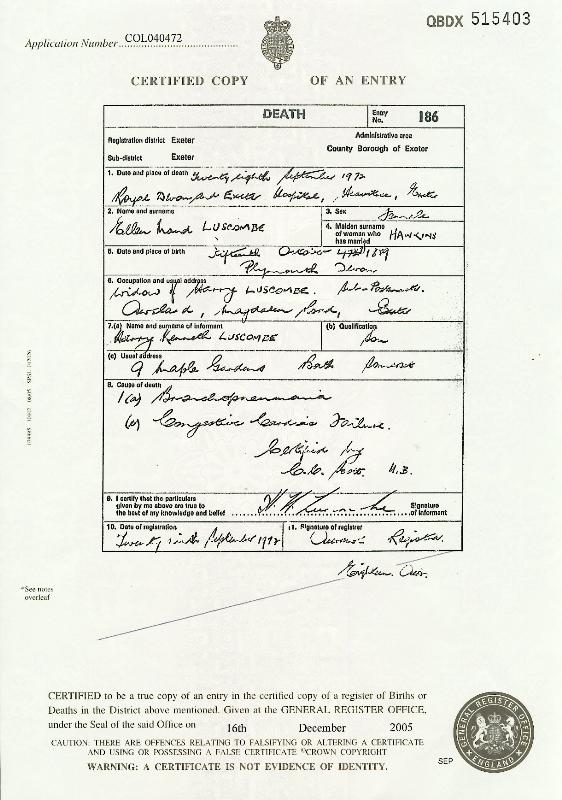 QBDX 515403
Application Number COL040472
CERTIFIED COPY OF AN ENTRY
DEATH Entry No. 186
Registration district Exeter Administrative area
Sub-district Exeter County Borough of Exeter
1. Date and place of death Twenty eighth September 1972
Royal Devon and Exeter Hospital, Heavitree, Exeter
2. Name and surname 3. Sex
Ellen Maud LUSCOMBE Female
4. Maiden surname of woman who has married HAWKINS
5. Date and place of birth Fifteenth October 1889
Plymouth Devon
6. Occupation and usual address
Widow of Harry LUSCOMBE.
Magdalen Road, Exeter
7.(a) Name and surname of informant (b) Qualification
Harry Kenneth LUSCOMBE Son
(c) Usual address
9 Maple Gardens Bath Somerset
8. Cause of death
1(a) Bronchopneumonia
Congestive Cardiac Failure.
Certified by
M.B.
9. I certify that the particulars given by me above are true to the best of my knowledge and belief Signature of informant
10. Date of registration 11. Signature of registrar
Twenty ninth September 1972 Registrar
*See notes
overleaf
CERTIFIED to be a true copy of an entry in the certified copy of a register of Births or
Deaths in the District above mentioned. Given at the GENERAL REGISTER OFFICE,
under the Seal of the said Office on 16th December 2005
CAUTION: THERE ARE OFFENCES RELATING TO FALSIFYING OR ALTERING A CERTIFICATE
AND USING OR POSSESSING A FALSE CERTIFICATE ©CROWN COPYRIGHT
WARNING: A CERTIFICATE IS NOT EVIDENCE OF IDENTITY.
SEP
GENERAL REGISTER OFFICE
ENGLAND